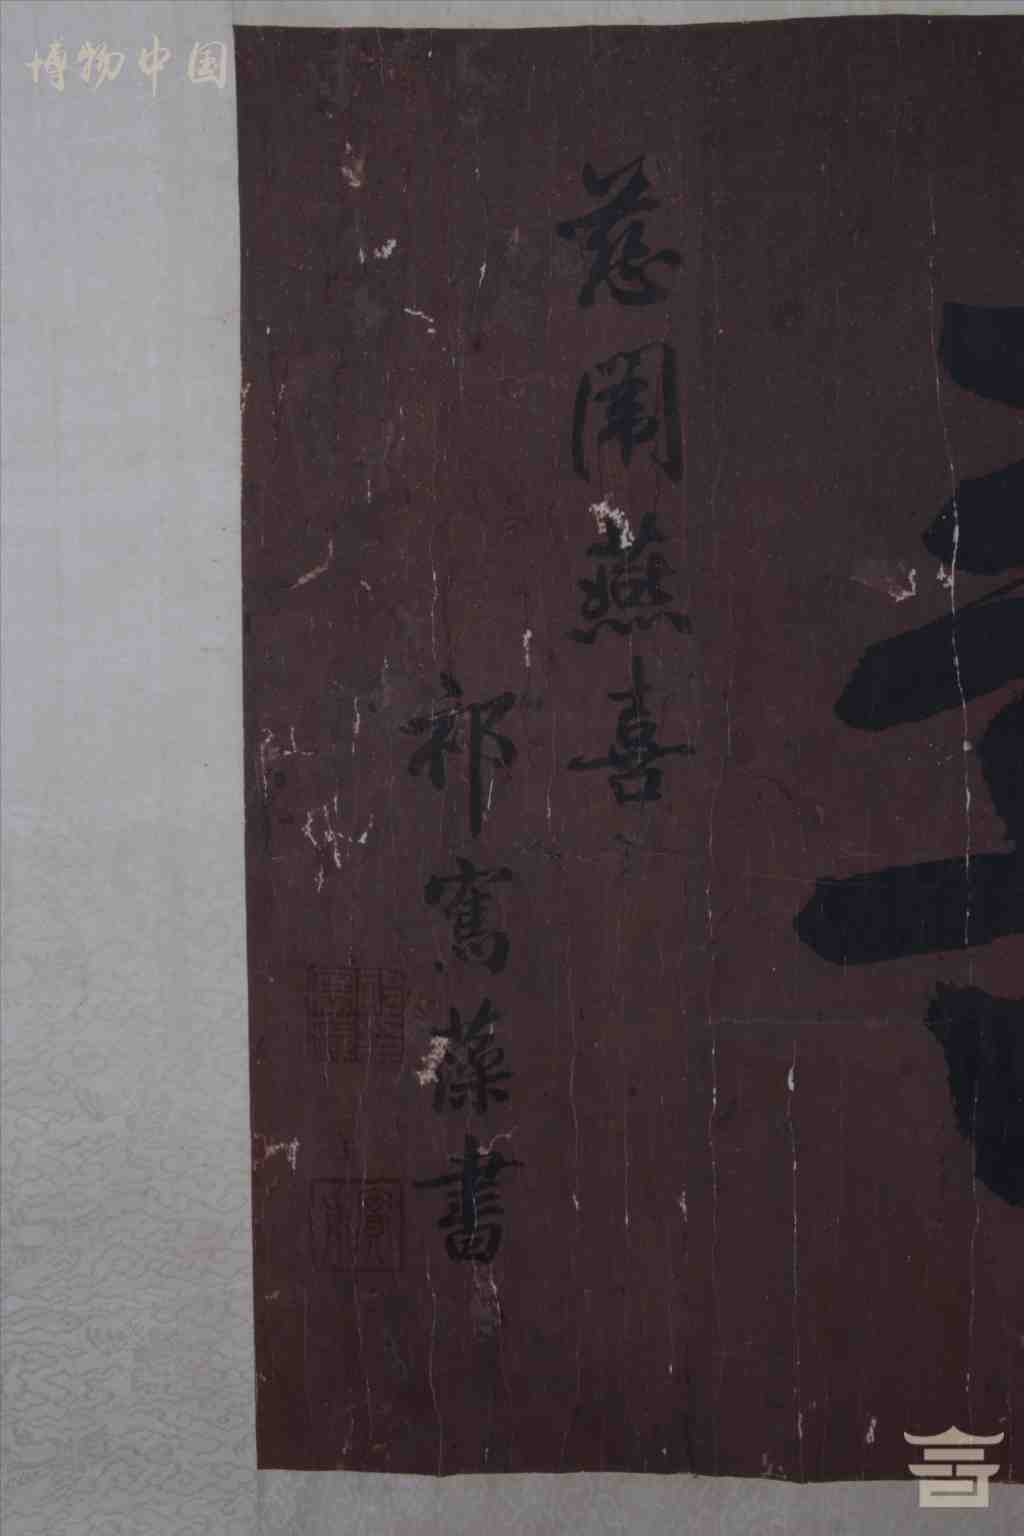 博物中国
慈闈燕喜
祁寯藻書